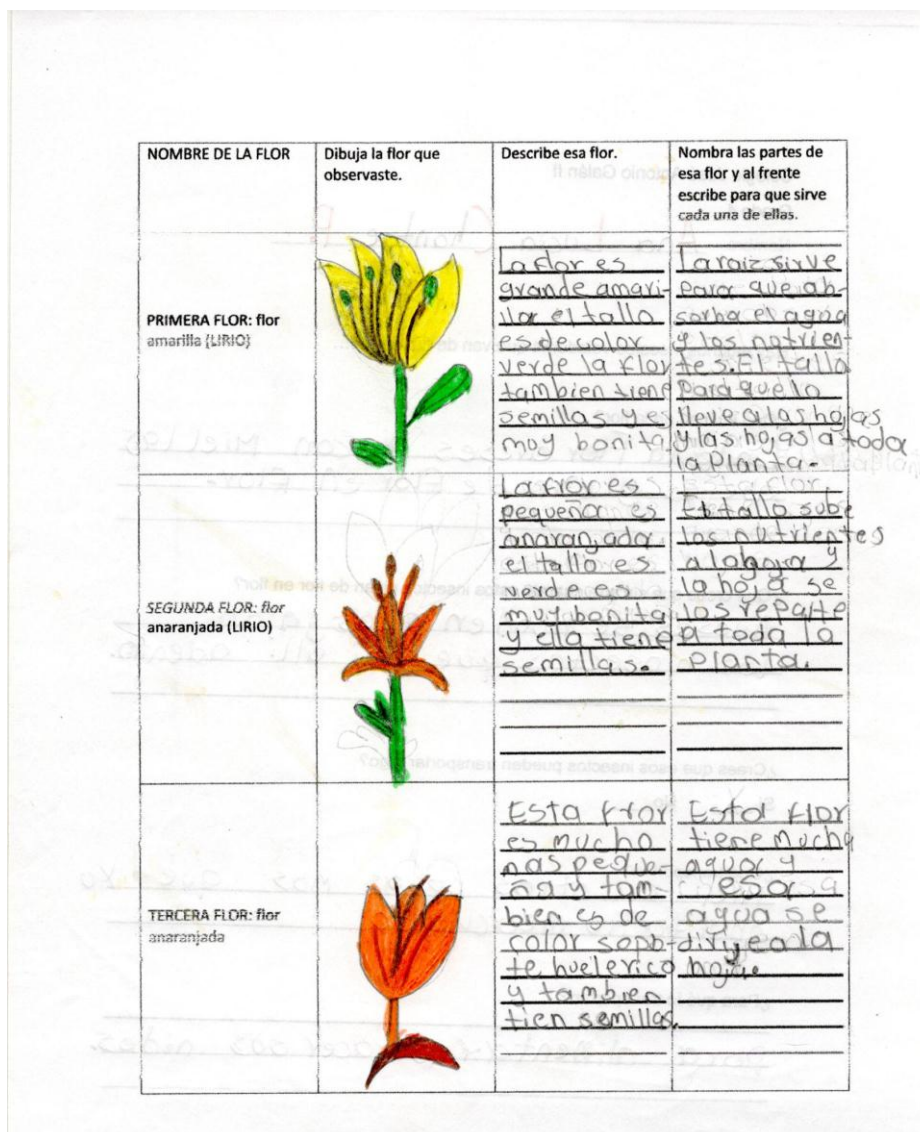 NOMBRE DE LA FLOR
Dibuja la flor que
observaste.
Describe esa flor.
Nombra las partes de
esa flor y al frente
escribe para que sirve
cada una de ellas.
PRIMERA FLOR: flor
amarilla (LIRIO)
La flor es
grande amari-
lla el tallo
es de color
verde la flor
tambien tiene
semillas y es
muy bonita
La raiz sirve
para que ab-
sorba el agua
y los nutrien-
tes. El tallo
para que lo
lleve a las hojas
y las hojas a toda
la planta.
SEGUNDA FLOR: flor
anaranjada (LIRIO)
La flor es
pequeña es
anaranjada
el tallo es
verde es
muy bonita
y ella tiene
semillas.
El tallo sube
los nutrientes
a la hoja y
la hoja se
los reparte
a toda la
planta.
TERCERA FLOR: flor
anaranjada
Esta flor
es mucho
mas peque-
ña y tam-
bien es de
color
te huele rico
y tambien
tien semillas.
Esta flor
tiene mucha
agua y
esa
agua se
dirije a la
hoja.